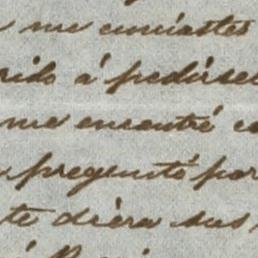 me enviastes
rido á pedirsel
me encontré co
preguntó por
te diera sus